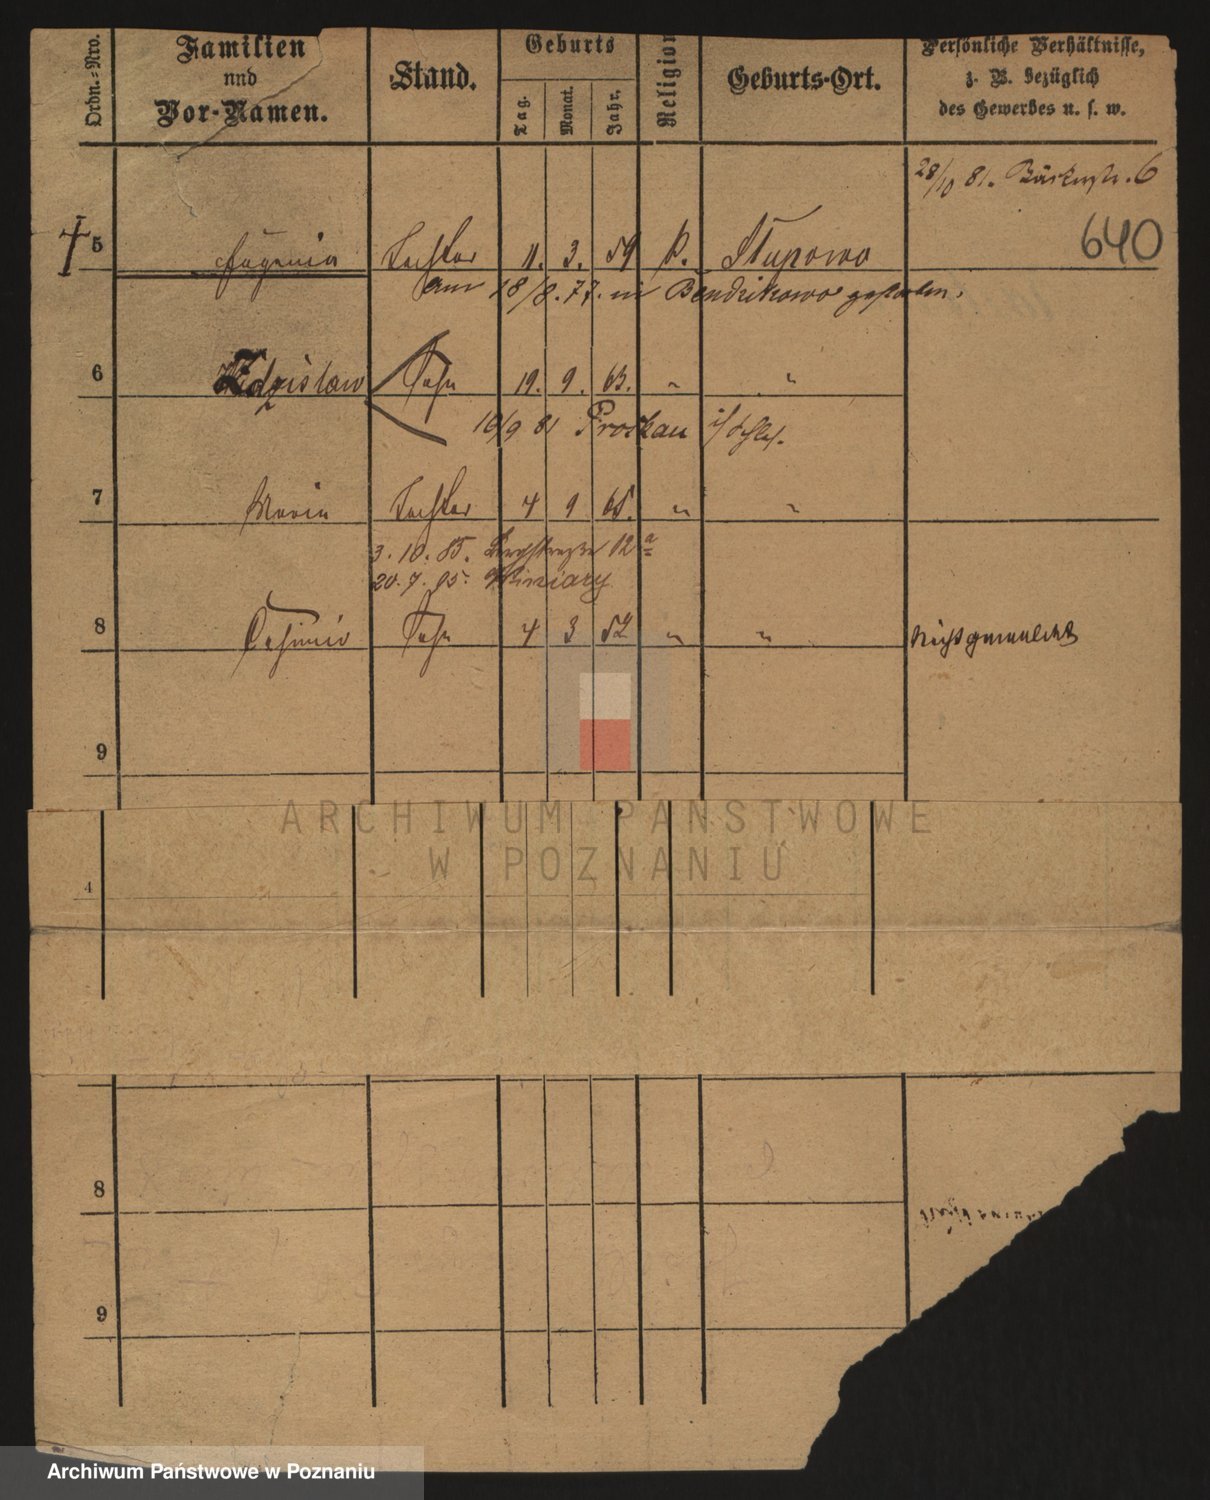 Ordn.-Nro.
Familien
und
Vor-Namen.
Stand.
Geburts
Tag.
Monat.
Jahr.
Religion
Geburts-Ort.
Persönliche Verhältnisse,
z. B. bezüglich
des Gewerbes u. s. w.
28/10 81. 6
640
5 Eugenia Tochter 11. 3. 59 k. Stupowo
am 18/8. 77. in Bendzikowo gestorben.
6 Zdzislaw Sohn 19. 9. 63. " "
16/9 81 Proskau i/ Schles.
7 Maria Tochter 4 9 65. " "
3. 10. 85. Bergstraße 12 a
20. 7. 95. Winiary
8 Casimir Sohn 4 3 52 " " Nicht gemeldet
9
ARCHIWUM PAŃSTWOWE
W POZNANIU
4
8
9
Archiwum Państwowe w Poznaniu